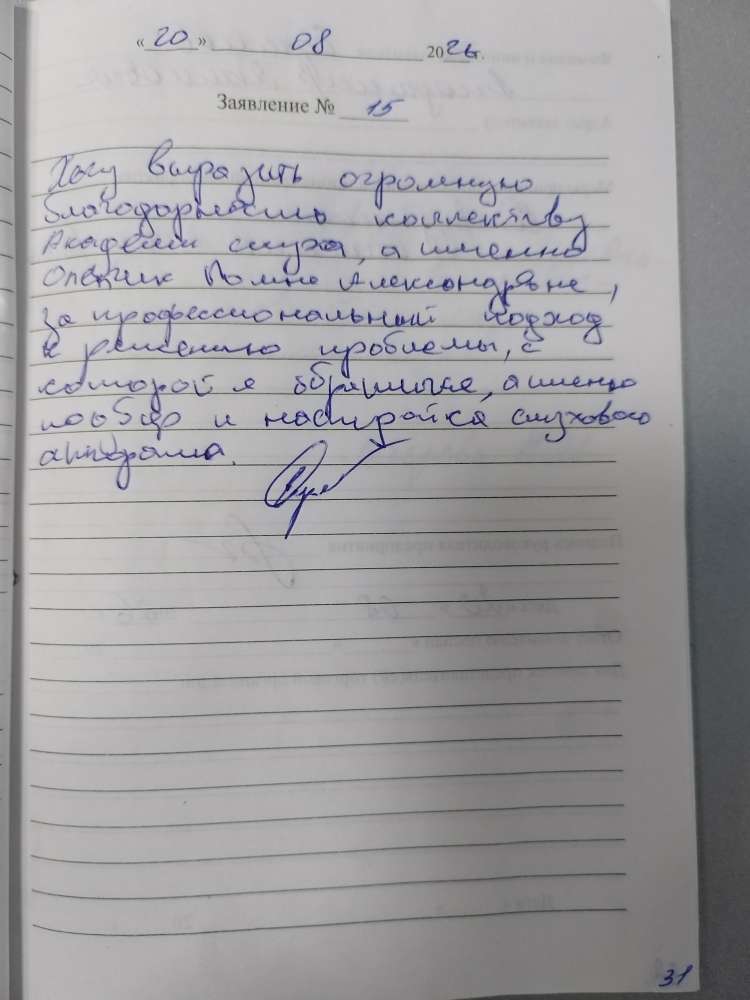 «20» 08 2026 г.
Заявление № 15
Хочу выразить огромную
благодарность коллективу
Академии слуха, а именно
Полине Александровне,
за профессиональный подход
к решению проблемы, с
которой я обратился, а именно
подбор и настройка слухового
аппарата.
31